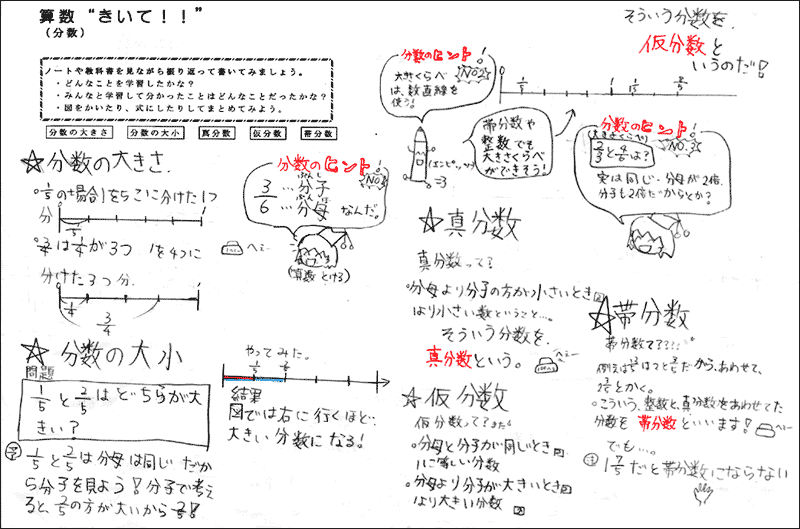 算数 “きいて！！”
(分数)
ノートや教科書を見ながら振り返って書いてみましょう。
・どんなことを学習したかな？
・みんなと学習して分かったことはどんなことだったかな？
・図をかいたり、式にしたりしてまとめてみよう。
分数の大きさ 分数の大小 真分数 仮分数 帯分数
☆分数の大きさ.
1/5の場合1を5こに分けた1つ
分
1/5
3/4は1/4が3つ 1を4つに
分けた3つ分.
1/4
3/4
分数のヒント!
No.1
3/6 …分子
…分母 なんだ。
(算数とける)
☆分数の大小
問題
1/5と2/5はどちらが大
きい？
予 1/5と2/5は分母は同じ だか
ら分子を見よう!分子で考え
ると、2/5の方が大いから2/5!
やってみた。
1/5 2/5
結果
図では右に行くほど
大きい分数になる!
分数のヒント!
No.2
大きさくらべ
は、数直線を
使う!
(エンピツ)
帯分数や
整数でも
大きさくらべ
ができそう!
分数のヒント!
No.3
(大きさくらべ)
2/3と4/6は?
実は同じ・分母が2倍、
分子も2倍だからとか?
☆真分数
真分数って?
分母より分子の方が小さいとき
1より小さい数ということ…。
そういう分数を、
真分数という。
☆仮分数
仮分数って?
分母と分子が同じとき
1に等しい分数
分母より分子が大きいとき
1より大きい分数
そういう分数を、
仮分数と
いうのだ!
☆帯分数
帯分数て????
だから、あわせて、
とかく。
こういう、整数と真分数をあわせてた
分数を 帯分数といいます!
でも…。
だと帯分数にならない